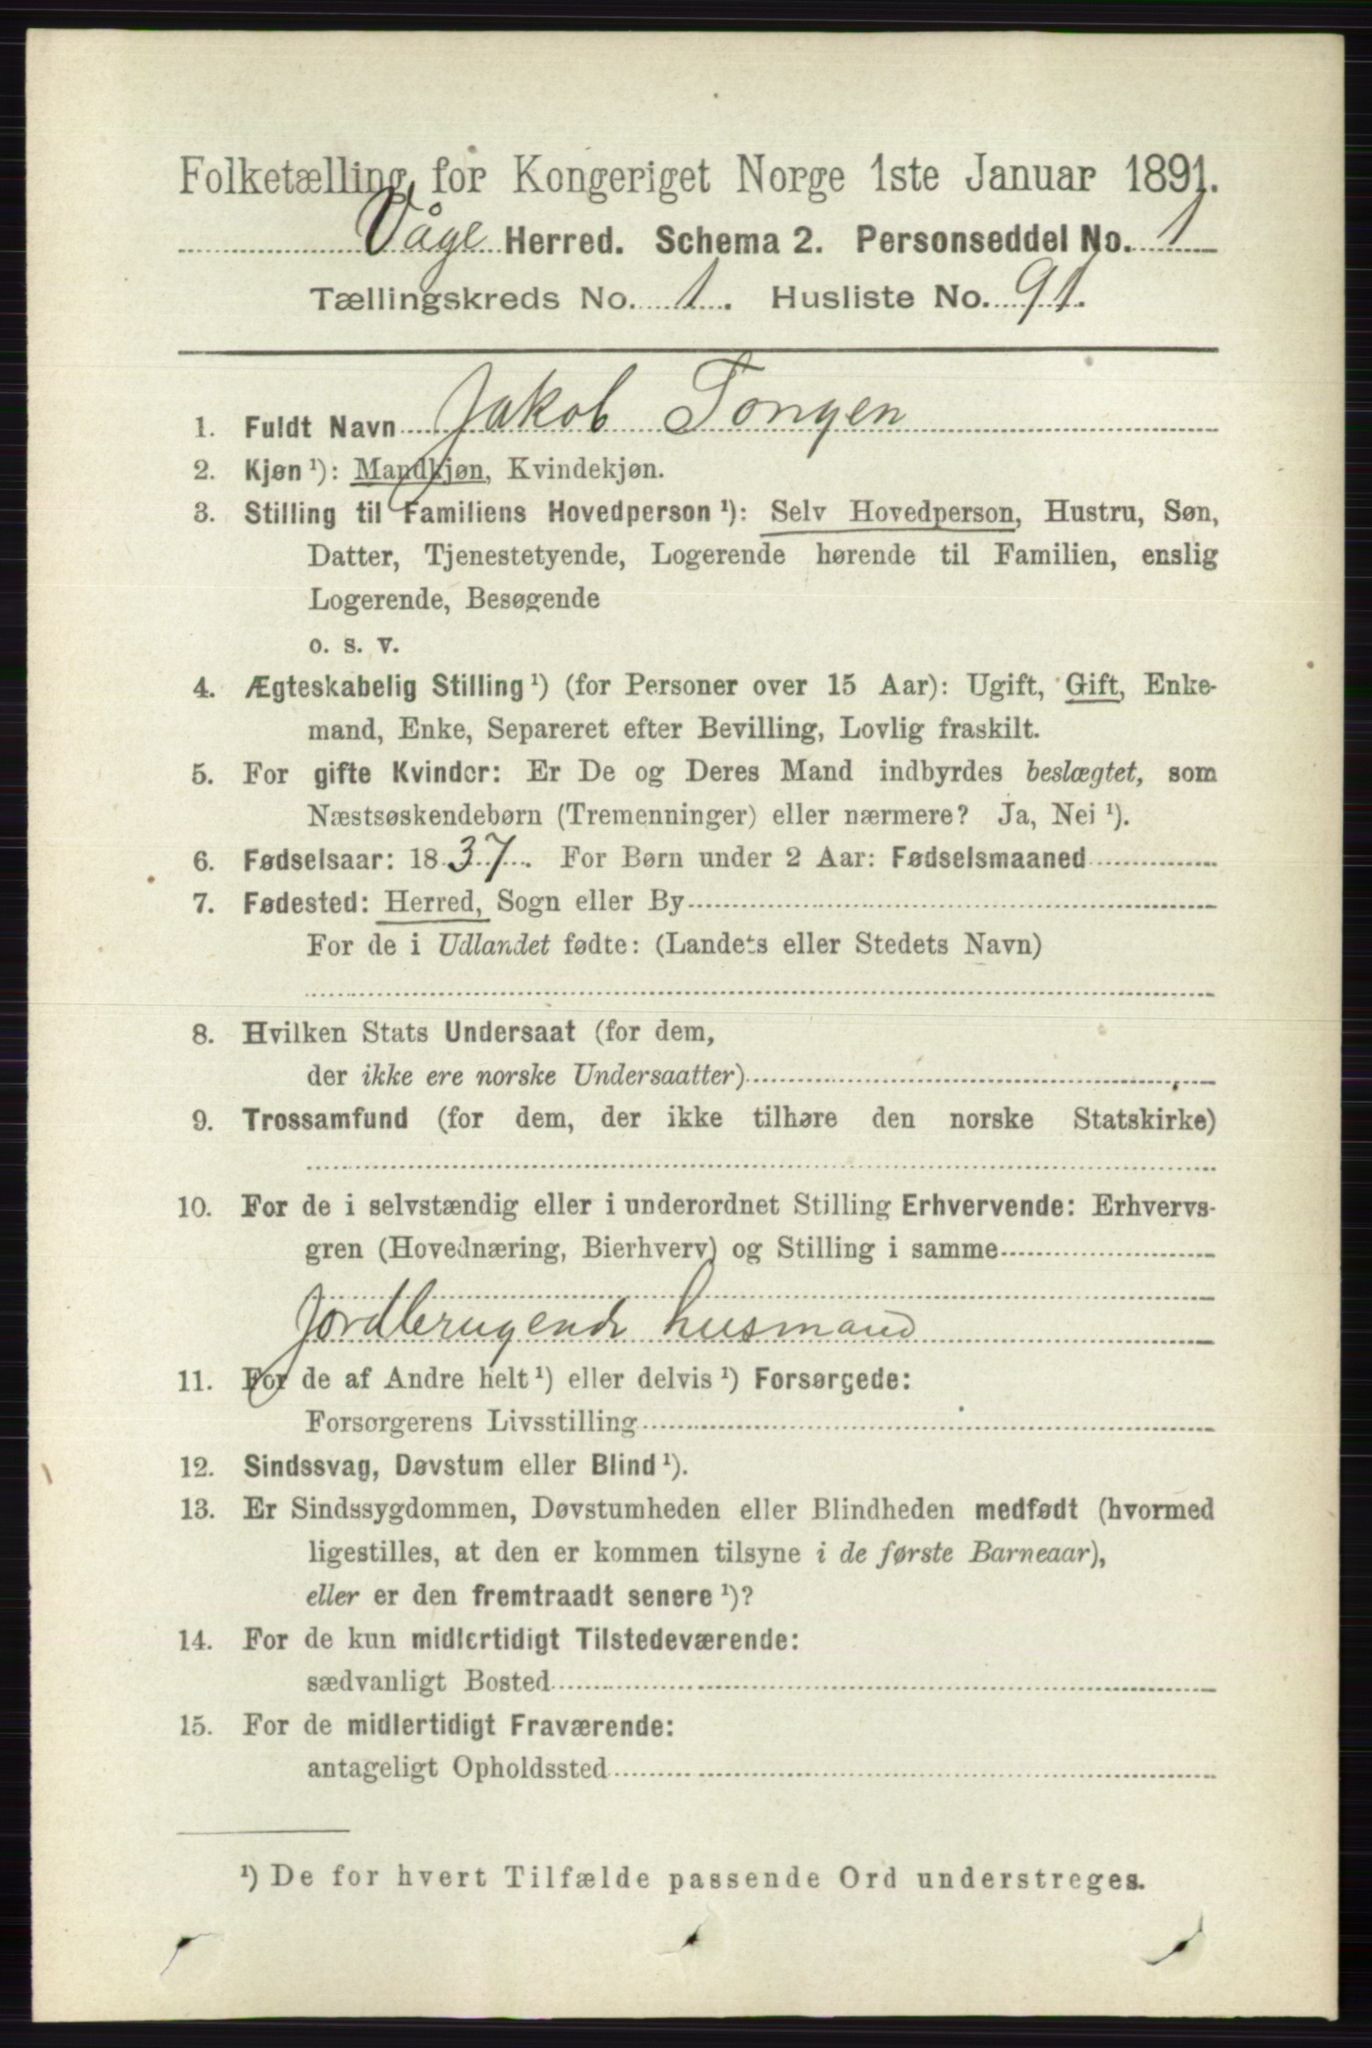 Folketælling for Kongeriget Norge 1ste Januar 1891.
Våge Herred. Schema 2. Personseddel No. 1
Tællingskreds No. 1. Husliste No. 91.
1. Fuldt Navn Jakob Tongen
2. Kjøn ¹): Mandkjøn, Kvindekjøn.
3. Stilling til Familiens Hovedperson ¹): Selv Hovedperson, Hustru, Søn,
Datter, Tjenestetyende, Logerende hørende til Familien, enslig
Logerende, Besøgende
o. s. v.
4. Ægteskabelig Stilling ¹) (for Personer over 15 Aar): Ugift, Gift, Enke-
mand, Enke, Separeret efter Bevilling, Lovlig fraskilt.
5. For gifte Kvinder: Er De og Deres Mand indbyrdes beslægtet, som
Næstsøskendebørn (Tremenninger) eller nærmere? Ja, Nei ¹).
6. Fødselsaar: 1837. For Børn under 2 Aar: Fødselsmaaned
7. Fødested: Herred, Sogn eller By
For de i Udlandet fødte: (Landets eller Stedets Navn)
8. Hvilken Stats Undersaat (for dem,
der ikke ere norske Undersaatter)
9. Trossamfund (for dem, der ikke tilhøre den norske Statskirke)
10. For de i selvstændig eller i underordnet Stilling Erhvervende: Erhvervs-
gren (Hovednæring, Bierhverv) og Stilling i samme
Jordbrugende husmand
11. For de af Andre helt ¹) eller delvis ¹) Forsørgede:
Forsørgerens Livsstilling
12. Sindssvag, Døvstum eller Blind ¹).
13. Er Sindssygdommen, Døvstumheden eller Blindheden medfødt (hvormed
ligestilles, at den er kommen tilsyne i de første Barneaar),
eller er den fremtraadt senere ¹)?
14. For de kun midlertidigt Tilstedeværende:
sædvanligt Bosted
15. For de midlertidigt Fraværende:
antageligt Opholdssted
¹) De for hvert Tilfælde passende Ord understreges.